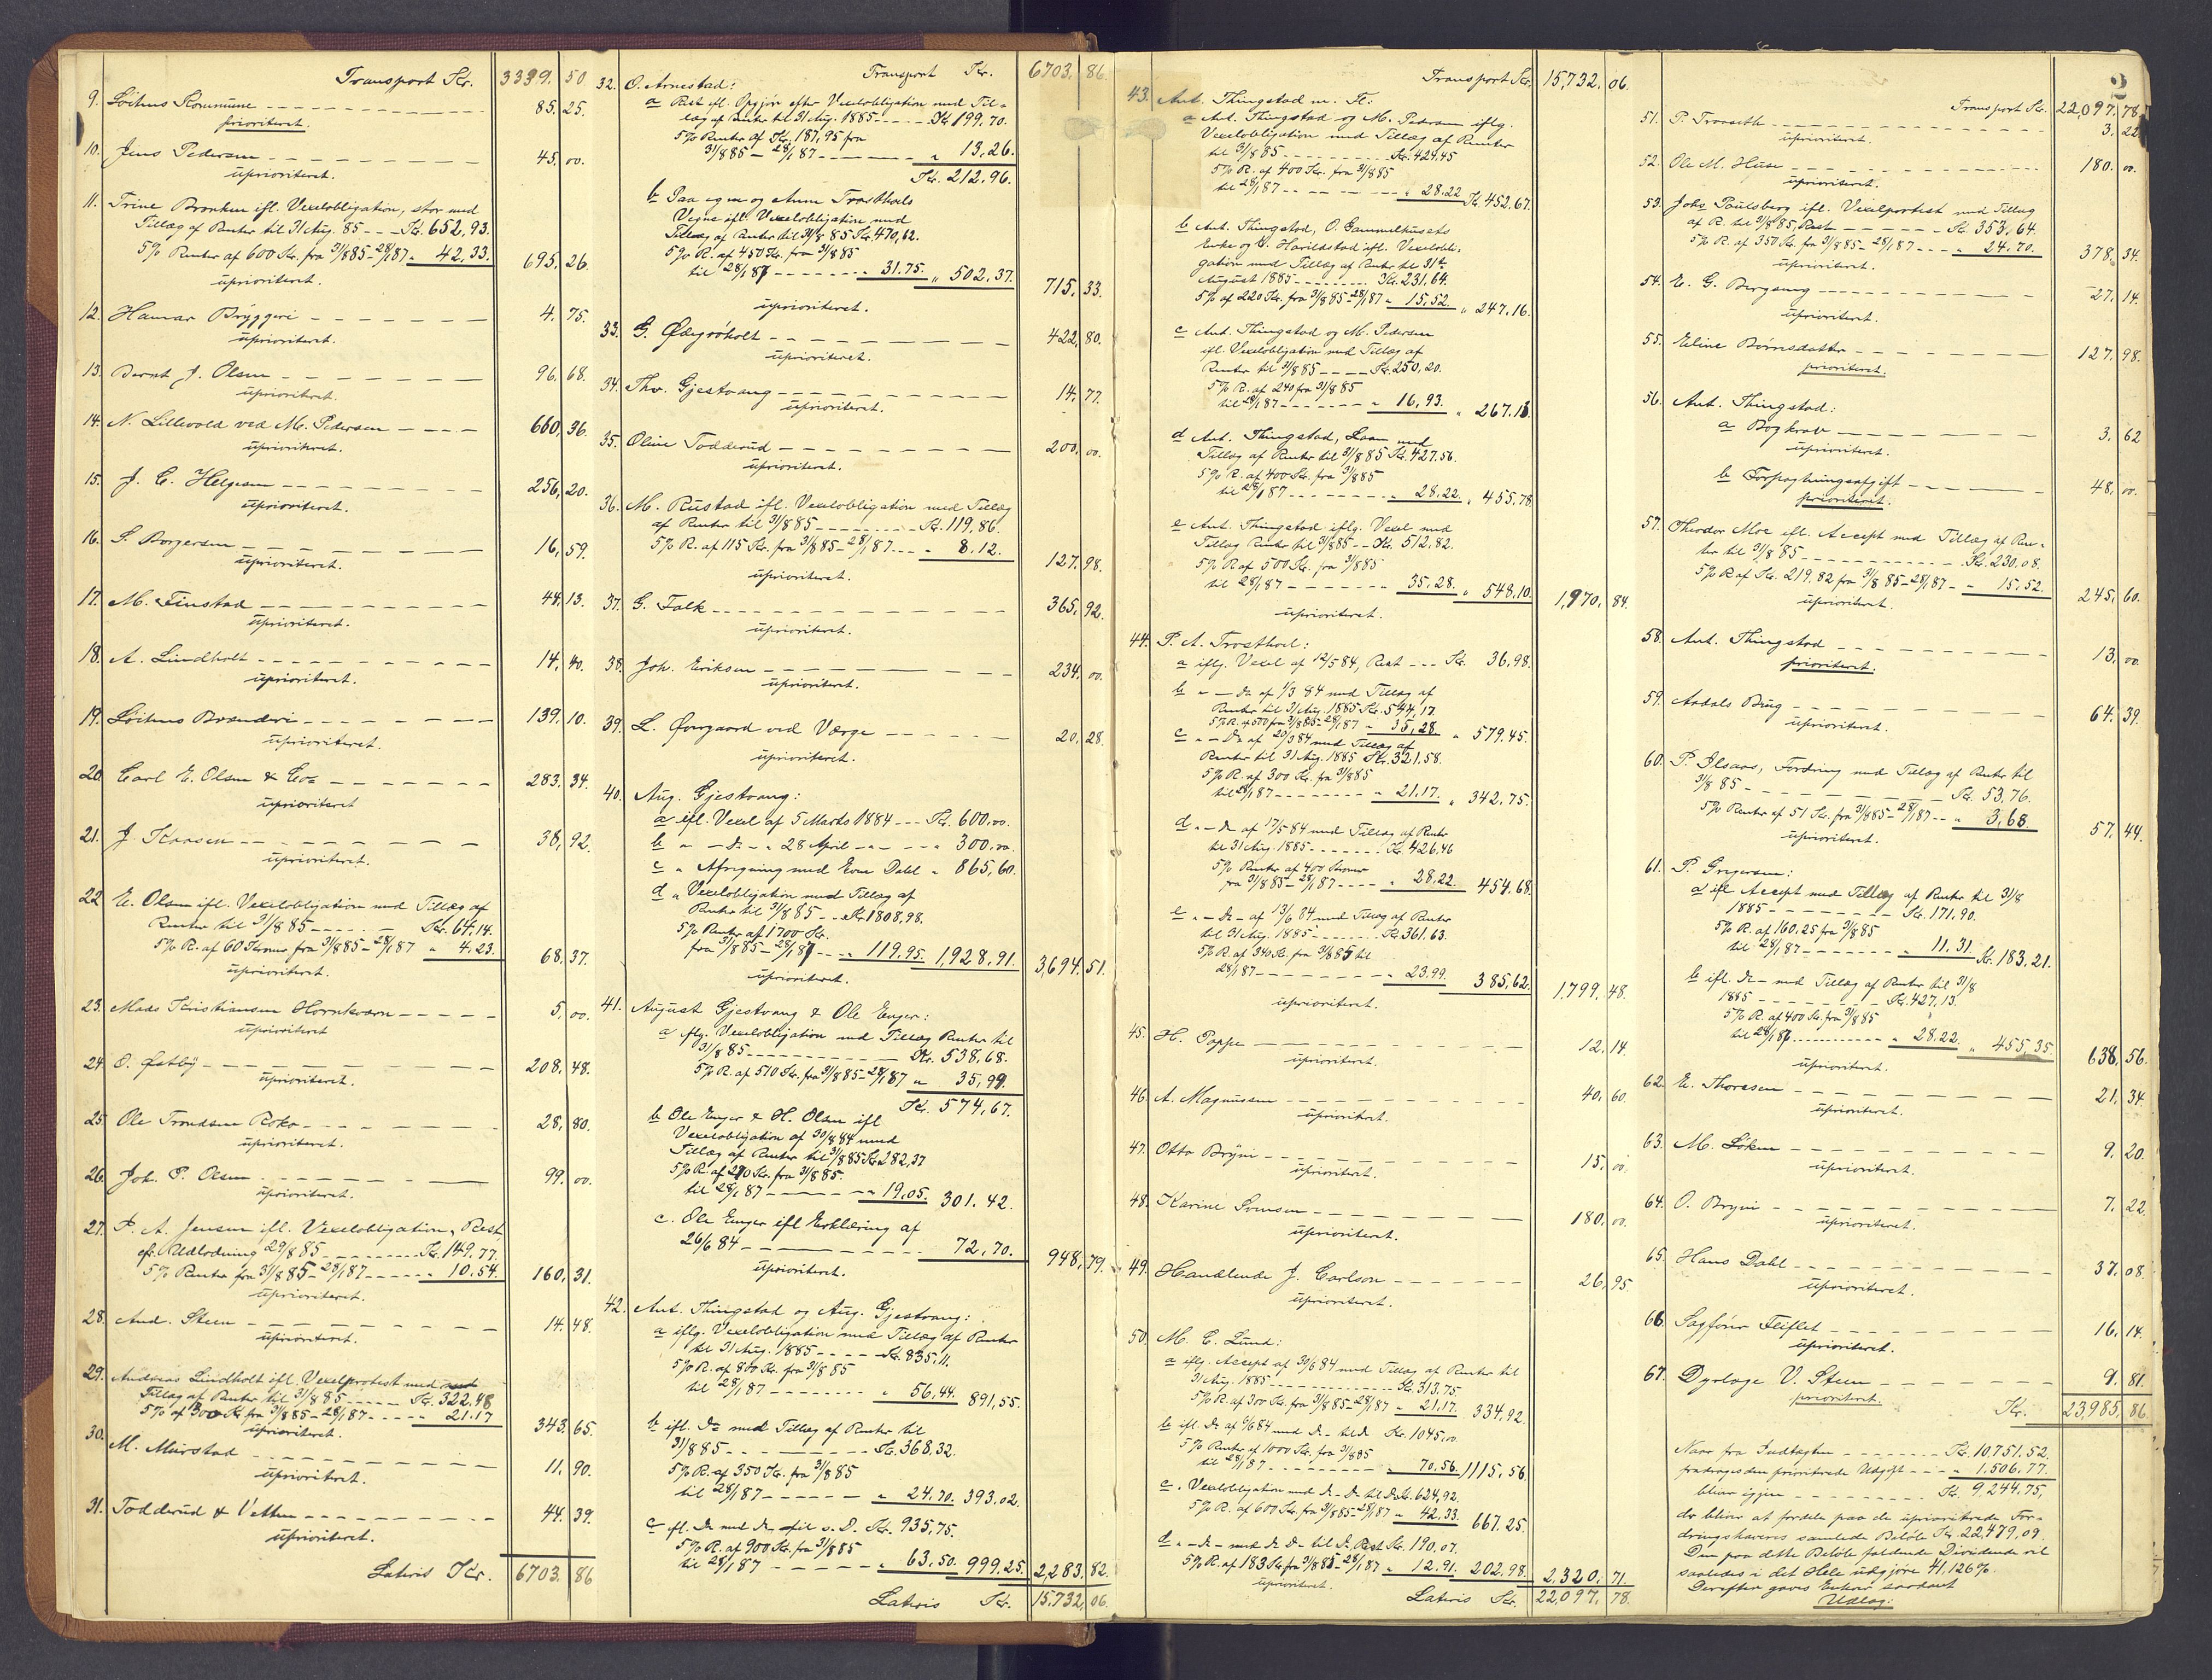 Transport Kr. 3339. 50
9. Löitens Kommune 85. 25.
prioriteret.
10. Jens Pedersen 45. 00.
uprioriteret.
11. Trine Bronken ifl. Vexelobligation, stor med
Tillæg af Renter til 31 Aug. 85 Kr. 652,93.
5% Renter af 600 Kr. fra 31/8 85 - 28/1 87 " 42,33. 695. 26.
uprioriteret.
12. Hamar Bryggeri 4. 75.
uprioriteret.
13. Bernt J. Olsen 96. 68.
uprioriteret.
14. N. Lillevold ved M. Pedersen 660, 36.
uprioriteret.
15. J. C. Helgesen 256, 20.
uprioriteret.
16. S. Borgersen 16, 59.
uprioriteret.
17. M. Finstad 44, 13.
uprioriteret.
18. A. Lindholt 14, 40.
uprioriteret.
19. Löitens Brænderi 139. 10.
uprioriteret.
20. Carl E. Olsen & Co= 283. 34.
uprioriteret
21. J. Kaasen 38, 92.
uprioriteret.
22 E. Olsen ifl. Vexelobligation med Tillæg af
Renter til 31/8 85 Kr. 64.14.
5% R. af 60 Kroner fra 31/8 85 - 28/1 87 " 4.23. 68, 37.
uprioriteret.
23. Mads Kristiansen Hornkværn 5, 00.
uprioriteret
24. O. Østby 208, 48.
uprioriteret.
25. Ole Trondsen Roko 28, 80.
uprioriteret.
26. Joh. P. Olsen 99. 00.
uprioriteret.
27. P. A. Jensen ifl. Vexelobligation, Rest,
eft. Udlodning 29/8 85 Kr. 149.77.
5% Renter fra 31/8 85 - 28/1 87 " 10.54. 160, 31.
uprioriteret.
28. And. Steen 14. 48.
uprioriteret.
29. Andreas Lindholt ifl. Vexelprotest med
Tillæg af Renter til 31/8 85 Kr. 322.48
5% af 300 Kr. fra 31/8 85 - 28/1 87 " 21.17 343. 65.
uprioriteret.
30. M. Mürstad 11. 90.
uprioriteret.
31. Todderud & Vetten 44. 39.
uprioriteret.
Lateris Kr. 6703. 86
Transport Kr. 6703. 86.
32. O. Arnestad:
a Rest ifl. Opgjør efter Vexelobligation med Til-
læg af Renter til 31 Aug. 1885 Kr 199.70.
5% Renter af Kr. 187,95 fra
31/8 85 - 28/1 87 " 13,26.
Kr. 212.96.
b Paa egne og Anne Trosthols
Vegne ifl. Vexelobligation med
Tillæg af Renter til 31/8 85 Kr. 470,62.
5% R. af 450 Kr. fra 31/8 85
til 28/1 87 31.75. " 502,37. 715, 33.
uprioriteret.
33. G. Ølegröholt 422, 80.
uprioriteret.
34. Thv. Gjestvang 14. 77.
uprioriteret.
35. Oline Todderud 200. 00.
uprioriteret.
36. M. Rustad ifl. Vexelobligation med Tillæg
af Renter til 31/8 85 Kr. 119,86.
5% R. af 115 Kr. fra 31/8 85 - 28/1 87 " 8.12. 127. 98.
uprioriteret.
37. G. Falk 365. 92.
uprioriteret.
38. Joh. Eriksen 234. 00.
uprioriteret.
39. L. Övergaard ved Værge 20, 28.
uprioriteret.
40. Aug. Gjestvang:
a ifl. Vexel af 5 Marts 1884 Kr. 600.00.
b " - Do - " 28 April " 300,00.
c " Afregning med Even Dahl " 865,60.
d " Vexelobligation med Tillæg af
Renter til 31/8 85 Kr 1808,98.
5% Renter af 1700 Kr.
fra 31/8 85 - 28/1 87 " 119.95. 1,928,91. 3,694. 51.
uprioriteret.
41. August Gjestvang & Ole Enger:
a iflg. Vexelobligation med Tillæg Renter til
31/8 85 Kr. 538,68.
5% R. af 510 Kr. fra 31/8 85 - 28/1 87 " 35,99.
Kr. 574,67.
b Ole Enger & H. Olsen ifl
Vexelobligation af 30/8 84 med
Tillæg af Renter til 31/8 85 Kr 282,37
5% R. af 270 Kr. fra 31/8 85.
til 28/1 87 " 19.05. 301. 42.
c. Ole Enger ifl Erklæring af
26/6 84 72,70. 948, 79.
uprioriteret.
42. Ant. Thingstad og Aug. Gjestvang:
a iflg. Vexelobligation med Tillæg af Renter
til 31 Aug. 1885 Kr. 835,11.
5% R. af 800 Kr. fra 31/8 85
til 28/1 87 " 56.44. 891,55.
b ifl. Do med Tillæg af Renter til
31/8 85 Kr. 368.32.
5% R. af 350 Kr. fra 31/8 85
til 28/1 87 " 24.70. 393.02.
c ifl. Do med Do til s. D. Kr. 935,75.
5% R. af 900 Kr. fra 31/8 85
til 28/1 87 " 63,50. 999.25. 2,283. 82.
Lateris Kr. 15,732, 06.
Transport Kr. 15,732. 06.
43. Ant. Thingstad m. Fl:
a Ant. Thingstad og M. Pedersen iflg.
Vexelobligation med Tillæg af Renter
til 31/8 85 Kr. 424.45
5% R. af 400 Kr. fra 31/8 85
til 28/1 87 " 28.22 Kr. 452.67.
b Ant. Thingstad, O. Gammelhusets
Enke og C. Harildstad ifl. Vexelobli-
gation med Tillæg af Renter til 31te
August 1885 Kr. 231,64.
5% af 220 Kr. fra 31/8 85 - 28/1 87 " 15,52. " 247.16.
c Ant. Thingstad og M. Pedersen
ifl. Vexelobligation med Tillæg af
Renter til 31/8 85 Kr. 250,20.
5% R. af 240 fra 31/8 85
til 28/1 87 " 16,93. " 267.13.
d Ant. Thingstad, Laan med
Tillæg af Renter til 31/8 85 Kr. 427.56.
5% R. af 400 Kr. fra 31/8 85
til 28/1 87 " 28.22. " 455.78
e Ant. Thingstad iflg. Vexel med
Tillæg Renter til 31/8 85 Kr. 512,82.
5% R af 500 Kr. fra 31/8 85
til 28/1 87 35,28. " 548,10. 1,970, 84.
uprioriteret.
44. P. A. Trosthoel:
a iflg. Vexel af 12/5 84, Rest Kr. 36,98.
b " - Do af 1/3 84 med Tillæg af
Renter til 31 Aug. 1885 Kr. 544,17
5% R. af 500 fra 31/8 85 - 28/1 87 " 35,28 " 579.45.
c " - Do af 20/3 84 med Tillæg af
Renter til 31 Aug. 1885 Kr. 321.58.
5% R. af 300 Kr. fra 31/8 85
til 28/1 87 " 21.17. " 342,75.
d " - Do af 17/5 84 med Tillæg af Renter
til 31 Aug. 1885 Kr. 426.46
5% Renter af 400 Kroner
fra 31/8 85 - 28/1 87 " 28.22. 454.68.
e " - Do - af 13/6 84 med Tillæg af Renter
til 31 Aug. 1885 Kr 361.63.
5% R. af 340 Kr. fra 31/8 85 til
28/1 87 " 23.99. 385,62. 1,799, 48.
uprioriteret.
45. H. Poppe 12, 14.
uprioriteret.
46. A. Magnussen 40, 60.
uprioriteret.
47. Otto Bryni 15. 00.
uprioriteret.
48. Karine Svensen 180. 00.
uprioriteret.
49. Handlende J. Carlson 26, 95.
uprioriteret.
50. M. C. Lund:
a iflg. Accept af 30/6 84 med Tillæg af Renter til
31 Aug. 1885 Kr. 313.75
5% R. af 300 Kr. fra 31/8 85 - 28/1 87 " 21.17. 334,92.
b ifl. Do af 6/6 84 med Do - til Do Kr. 1045,00
5% Renter af 1000 Kr. fra 31/8 85
til 28/1 87 " 70.56. 1115,56
c " Vexelobligation med Do - Do til Do Kr. 624,92.
5% R. af 600 Kr. fra 31/8 85 - 28/1 87 " 42,33. 667.25.
d " - Do - med Do Do - til Do, Rest Kr. 190.07.
5% R. af 183 Kr. fra 31/8 85 - 28/1 87 " 12.91. 202,98. 2,320, 71.
uprioriteret.
Lateris Kr. 22,097, 78.
2
Transport Kr. 22,097. 78.
51. P. Troseth 3. 22
uprioriteret.
52. Ole M. Huse 180. 00.
uprioriteret.
53. Johs Poulsberg ifl. Vexelprotest med Tillæg
af R. til 31/8 85, Rest Kr. 353,64.
5% R. af 350 Kr. fra 31/8 85 - 28/1 87 " 24.70. 378. 34.
uprioriteret.
54. E. G. Bergseng 27. 14.
uprioriteret.
55. Eline Börresdatter 127. 98.
prioriteret.
56. Ant. Thingstad:
a Bogkrav 3. 62
uprioriteret.
b Forpagtningsafgift 48, 00.
prioriteret.
57. Theodor Moe ifl. Accept med Tillæg af Ren-
ter til 31/8 85 Kr. 230,08.
5% R af Kr. 219,82 fra 31/8 85 - 28/1 87 " 15,52. 245, 60.
uprioriteret.
58. Ant. Thingstad 13. 00.
prioriteret.
59. Aadals Brug 64. 39.
uprioriteret.
60. P. Ilsaas, Fordring med Tillæg af Renter til
31/8 85 Kr. 53,76.
5% Renter af 51 Kr. fra 31/8 85 - 28/1 87 " 3,68. 57. 44.
uprioriteret.
61. P. Gregersen:
a ifl. Accept med Tillæg af Renter til 31/8
1885 Kr. 171.90.
5% R. af 160,25 fra 31/8 85
til 28/1 87 " 11.31. Kr. 183.21.
b ifl. Do - med Tillæg af Renter til 31/8
1885 Kr. 427.13.
5% R. af 400 Kr. fra 31/8 85
til 28/1 87 " 28.22. " 455,35. 638, 56.
uprioriteret.
62. E. Thoresen 21, 34.
uprioriteret.
63. M. Löken 9. 20.
uprioriteret.
64. O. Bryni 7. 22.
uprioriteret.
65. Hans Dahl 37. 08.
uprioriteret.
66. Sagförer Fliflet 16, 14.
uprioriteret.
67. Dyrlæge V. Steen 9. 81.
prioriteret.
Kr. 23,985, 86.
Naar fra Indtægten Kr. 10,751,52.
fradrages den prioriterede Udgift " 1,506,77.
bliver igjen Kr. 9,244,75,
der bliver at fordele paa de uprioriterede For-
dringshaveres samlede Beløb Kr. 22,479,09.
Den paa dette Beløb faldende Dividende vil
saaledes i det Hele udgjøre 41,126%.
Derefter gives Enhver saadant
Udlæg: